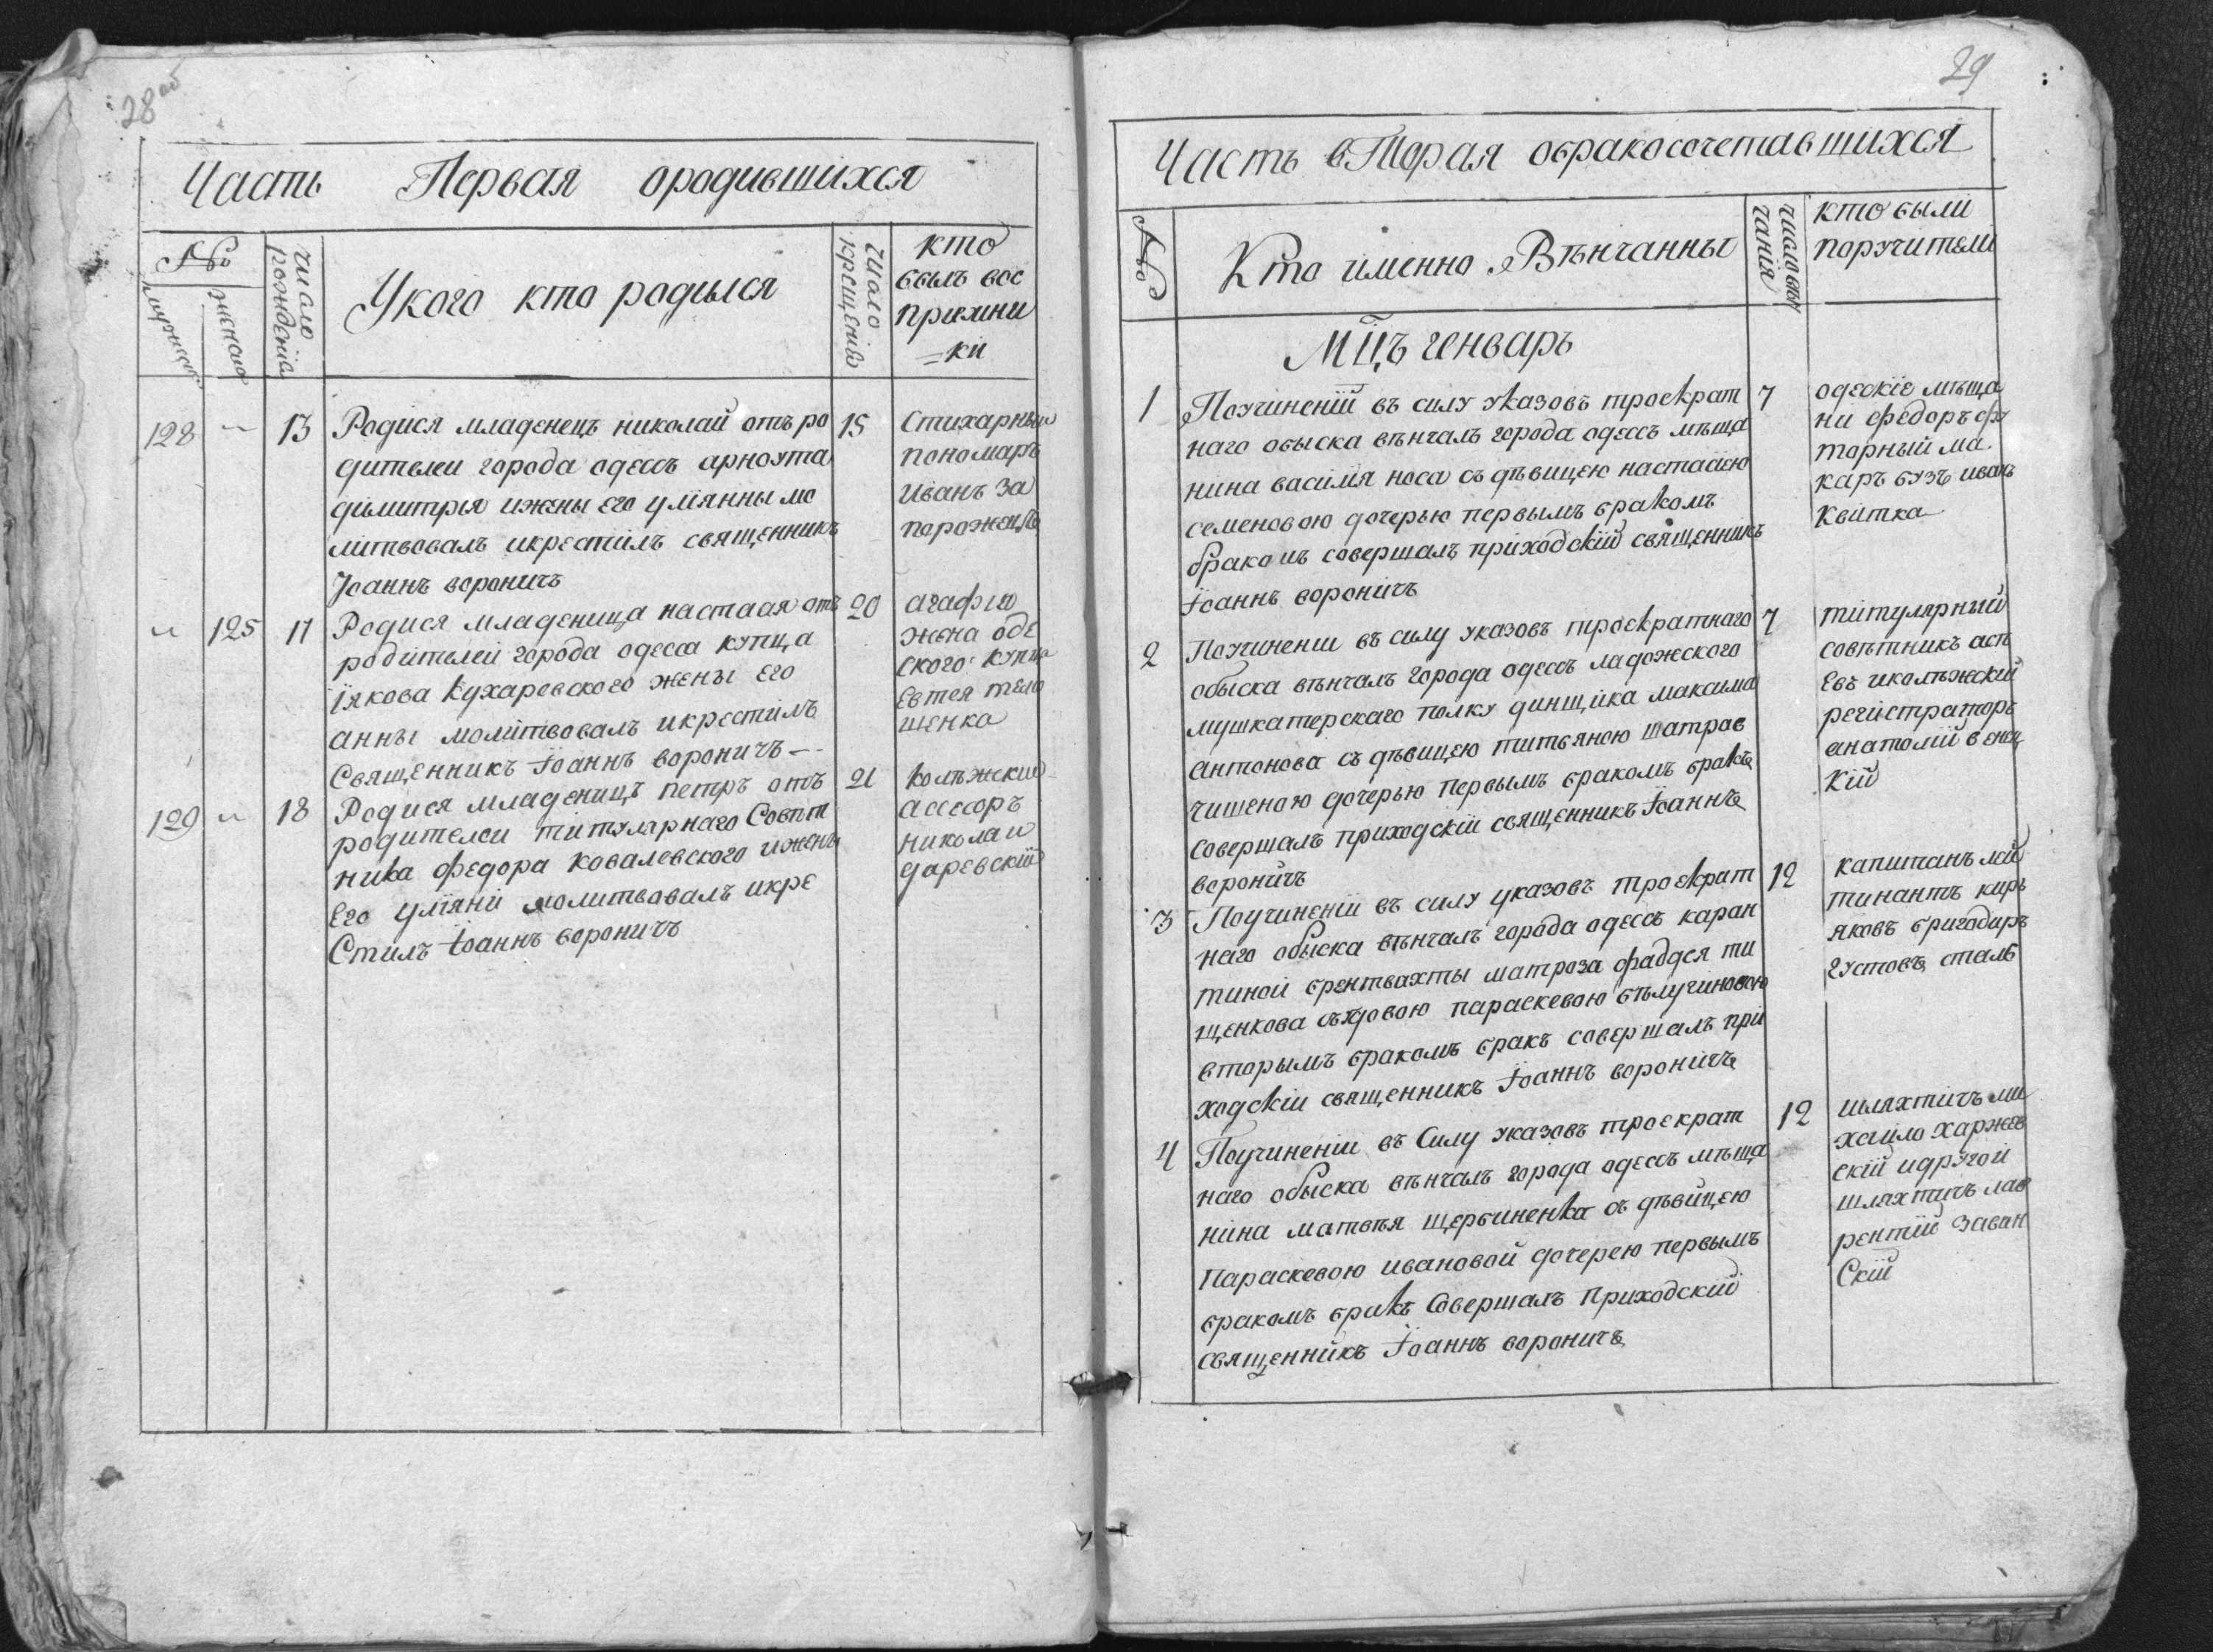 28 об
Часть Первая ородившихся
№
мужеска
женска
число рождения
Укого кто родился
число крещения
кто
былъ вос
приемни
=ки
128 ~ 13 15
Родися младенецъ николай отъ ро
дителеи города одессъ арноута
димитрія ижены его уліянны мо
литвовалъ икрестилъ священникъ
Іоаннъ вороничъ
Стихарныи
пономаръ
Иванъ За
порожецъ
~ 125 17 20
Родися младеница настася отъ
родителей города одесса купца
Іякова Кухаревского жены его
анны молитвовалъ икрестилъ
Священникъ Іоаннъ вороничъ
агафия
жена оде
ского купца
Евтея
шенка
129 ~ 18 21
Родися младеницъ петръ отъ
родителеи титулярнаго Совѣт
ника федора Ковалевского ижены
Его уліяни молитвовалъ икре
Стилъ Іоаннъ вороничъ
Колѣжский
асессоръ
николаи
даревскій
29
Часть вТорая обракосочетавшихся
№
Кто именно Вѣнчанны
число вѣнчания
кто были
поручители
Мцъ генварь
1 7
Поучиненіи въ силу указовъ троекрат
наго обыска вѣнчалъ города одессъ мѣща
нина василія носа съ дѣвицею настасіею
семеновою дочерью первымъ бракомъ
бракъ совершалъ приходскій священникъ
Іоаннъ вороничъ
одескіе мѣща
ни федоръ фл
торный ма
каръ бузъ иванъ
Квитка
2 7
Поучинении въ силу указовъ троекратнаго
обыска вѣнчалъ города одессъ ладожского
мушкатерскаго полку динщика максима
антонова съ дѣвицею титьяною шатров
чишеною дочерью первымъ бракомъ бракъ
совершалъ приходскіи священникъ Іоаннъ
вороничъ
титулярный
совѣтникъ
евъ иколѣжский
регистраторъ
анатолій
кій
3 12
Поучинении въ силу указовъ троекрат
наго обыска вѣнчалъ города одессъ каран
тиной брентвахты матроза фаддея ти
щенкова съ вдовою параскевою бѣлучиновою
вторымъ бракомъ бракъ совершалъ при
ходскіи священникъ Іоаннъ вороничъ
капитанъ лей
тинантъ кирь
яковъ бригадиръ
густовъ сталь
4 12
Поучинении въ Силу указовъ троекрат
наго обыска вѣнчалъ города одессъ мѣща
нина матвѣя щербиненка съ дѣвицею
Параскевою ивановой дочерею первымъ
бракомъ бракъ Совершалъ Приходский
священникъ Іоаннъ вороничъ
шляхтичъ ми
хайло харжев
скій идругой
шляхтичъ лав
рентій заван
Скій